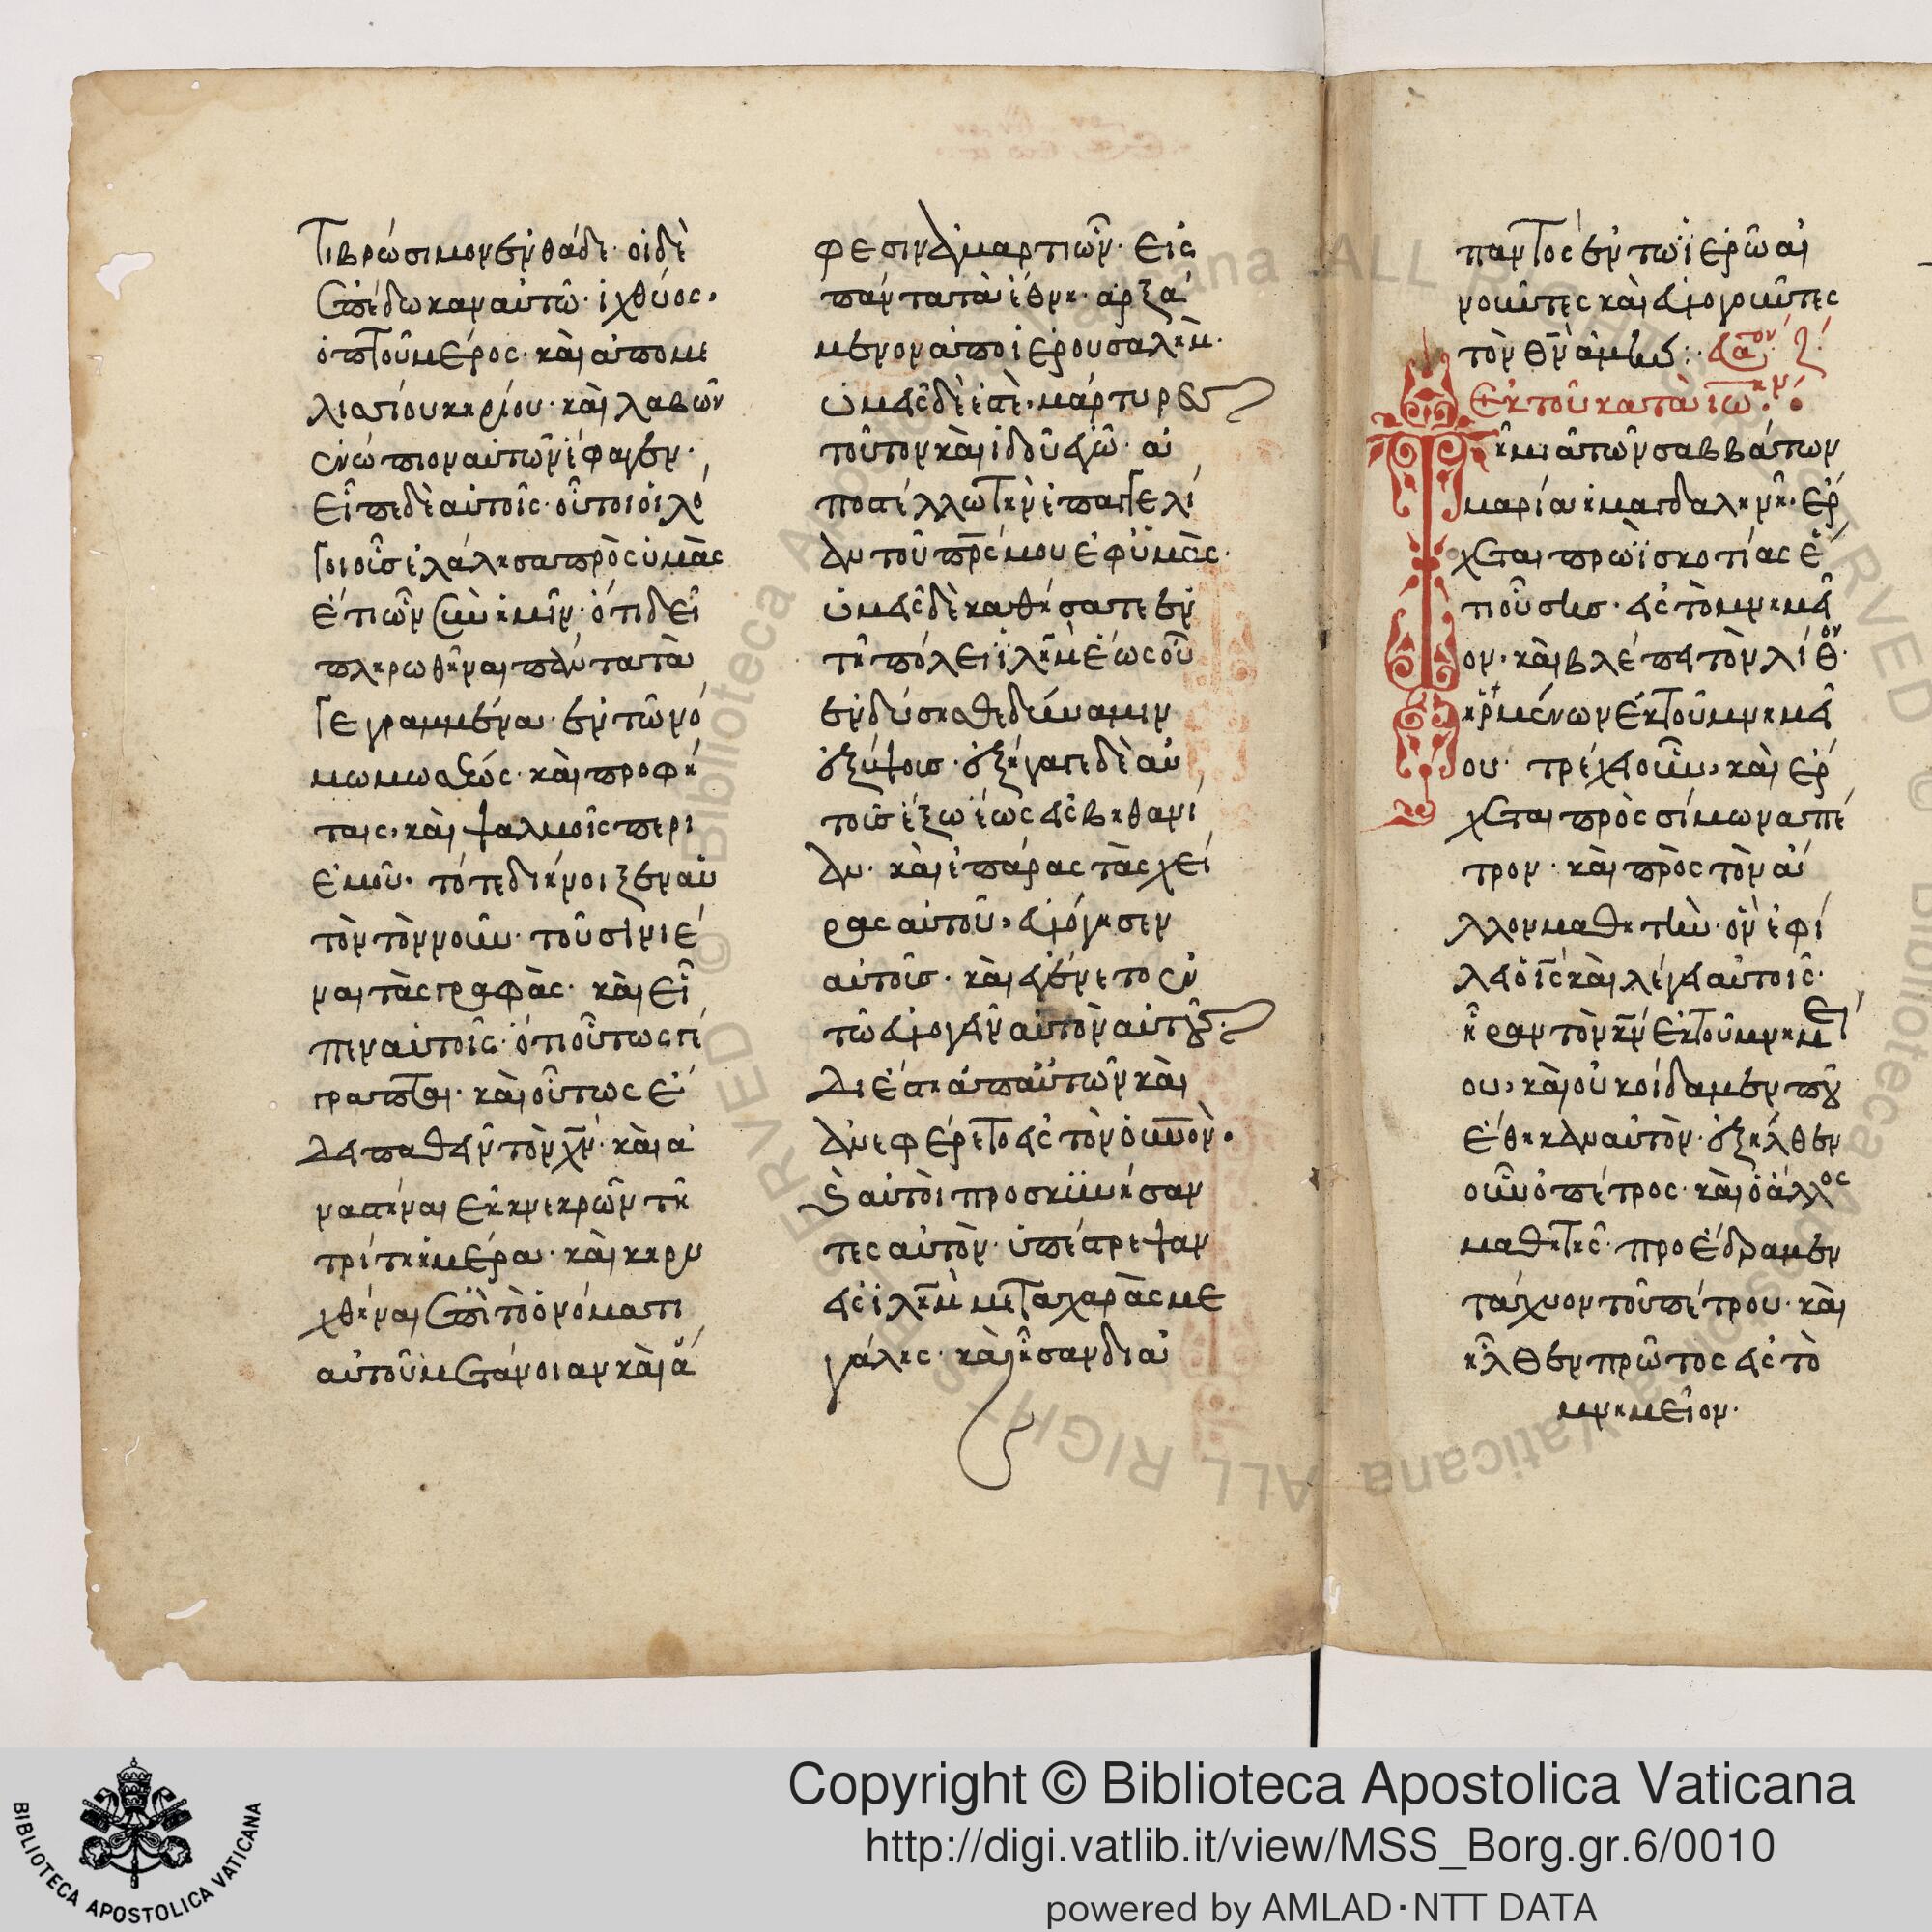 τι βρώσιμον ἐνθάδε· οἱ δὲ
ἐπέδωκαν αὐτῶ· ἰχθύος,
ὀπτοῦ μέρος· καὶ ἀπο με
λισσίου κηρίου· καὶ λαβὼν
ἐνώπιον αὐτῶν ἔφαγεν·
εἶπε δὲ αὐτοῖς· οὗτοι οἱ λό
γοι οἷς ἐλάλησα πρὸς ὑμᾶς
ἔτι ὢν σὺν ἡμῖν· ὅτι δεῖ
πληρωθῆναι πάντα τὰ
γεγραμμένα· ἐν τῶ νό
μω μωσέως· καὶ προφή
ταις, καὶ ψαλμοῖς περι
ἐμοῦ· τότε διήνοιξεν αὐ
τὸν τὸν νοῦν· τοῦ σινιέ
ναι τὰς γραφὰς· καὶ εἶ
πεν αὐτοῖς· ὅτι οὕτως γέ
γραπται· καὶ οὕτως ἔ
δει παθεῖν τὸν χν· καὶ ἀ
ναστῆναι ἐκ νεκρῶν τῆ
τρίτη ἡμέρα· καὶ κηρυ
χθῆναι ἐπὶ τὸ ὀνόματι
αὐτοῦ μετάνοιαν καὶ ἄ
φεσιν ἁμαρτιῶν· εἰς
πάντα τὰ ἔθνη· ἀρξά
μενον ἀπο ἱερουσαλὴμ·
ὑμεῖς δὲ ἐστὲ, μάρτυρες
τοῦτον καὶ ἰδοῦ ἐγῶ· ἀ
ποστέλλω τὴν ἐπαγγελί
αν τοῦ πρς μου ἐφ ὑμᾶς·
ὑμεῖς δὲ καθήσατε ἐν
τῆ πόλει ϊλημ ἕως οὗ
ἐνδύσησθε δύναμιν
ἐξ ὕψοις· ἐξήγαγε δὲ αὐ
τοῖς ἔξω ἕως εἰς βηθανί
αν· καὶ ἐπάρας τὰς χεί
ρας αὐτοῦ, εὐλόγησεν
αὐτοῖς· καὶ ἐγένετο ἐν
τῶ εὐλογεῖν αὐτὸν αὐτοὺς·
διέστη ἀπ' αὐτῶν καὶ
ἀνεφέρετο εἰς τὸν οὐνον·
ϛ αὐτοὶ προσκϋνήσαν
τες αὐτὸν· ὑπέστρεψαν
εἰς ϊλημ μετα χαρᾶς με
γάλης· καὶ ἦσαν δια
παντος ἐν τῶ ϊερῶ αἰ
νοῦντες καὶ εὐλογοῦντες
τὸν θν ἀμήν:·
Ἐκ τοῦ κατα ιω·
Τῆ μιᾶ τῶν σαββάτων
μαρία ἡ μαγδαληνῆ· ἔρ
χεται πρωῒ σκοτίας ἔ
τι οὔσης· εἰς τὸ μνημεῖ
ον· καὶ βλέπει τὸν λίθον·
ἠρμένων ἐκ τοῦ μνημεί
ου· τρέχει οὖν, καὶ ἔρ
χεται πρὸς σίμωνα πέ
τρον· καὶ πρὸς τὸν ἄ
λλον μαθητὴν· ὃν ἐφί
λει ὁ ις καὶ λέγει αὐτοις·
ἦραν τὸν κν ἐκ τοῦ μνημεί
ου, καὶ οὐκ οἴδαμεν ποῦ
ἔθηκαν αὐτὸν· ἐξῆλθεν
οὖν ὁ πέτρος· καὶ ὁ ἄλλος
μαθητὴς· προέδραμεν
τάχυον τοῦ πέτρου· καὶ
ἦλθεν πρῶτος εἰς τὸ
μνημεῖον·
Copyright © Biblioteca Apostolica Vaticana
http://digi.vatlib.it/view/MSS_Borg.gr.6/0010
powered by AMLAD·NTT DATA
BIBLIOTECA APOSTOLICA VATICANA